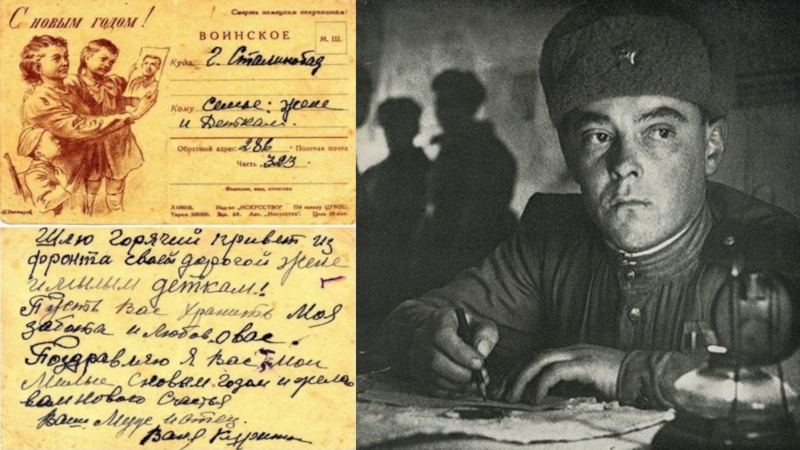 С НОВЫМ ГОДОМ!
Смерть немецким оккупантам!
ВОИНСКОЕ
М. Ш.
Куда г. Сталинобад
Кому Семье: жене
и Деткам.
Обратный адрес: 286 Полевая почта
Часть 323
Фамилия, имя, отчество
Изд-во „ИСКУССТВО"
Шлю горячий привет из
фронта своей дорогой жене
и милым деткам!
Пусть Вас хранить моя
забота и любовь о вас.
Поздравляю я Вас мои
Милые с новым годом и желаю
вам нового счастья
Ваш Муж и отец
Ваня